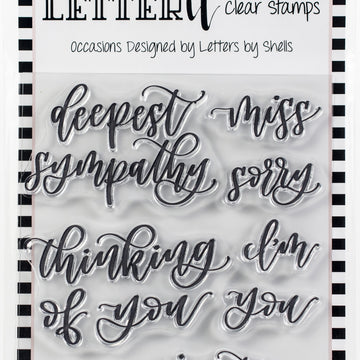 LETTER it
Clear Stamps
Occasions Designed by Letters by Shells
deepest miss
sympathy sorry
thinking I'm
of you you